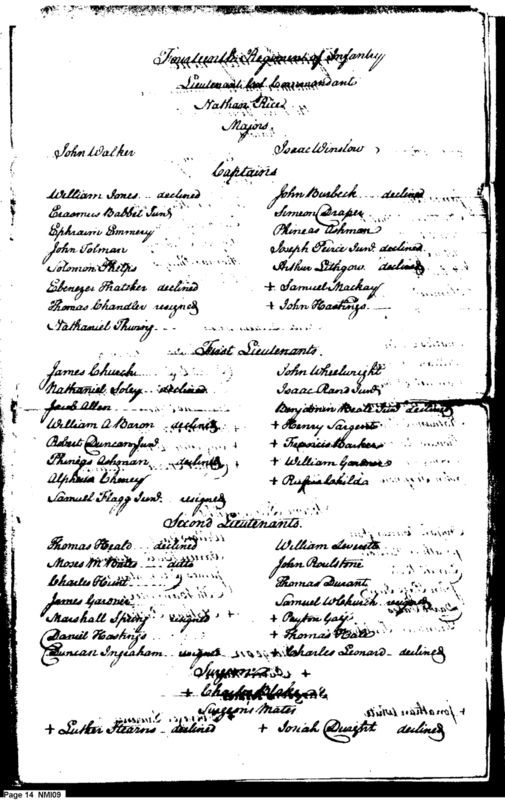 Fourteenth Regiment of Infantry
Lieutenant Col Commandant
Nathan Rice
Majors
John Walker
Isaac Winslow
Captains
William Jones declined
Erasmus Babbit Junr
Ephraim Emmery
John Tolman
Solomon Phelps
Ebenezer Thatcher declined
Thomas Chandler resigned
Nathaniel Thwing
John Burbeck declined
Simeon Draper
Phineas Ashman
Joseph Peirce Junr declined
Arthur Lithgow declined
+ Samuel Mackay
+ John Hastings
First Lieutenants
James Church
Nathaniel Soley declined
Jacob Allen
William A Baron declined
Robert Duncan Junr
Phineas Ashman declined
Alpheus Cheney
Samuel Flagg Junr resigned
John Wheelwright
Isaac Rand Junr
Benjamin Beale Junr declined
+ Henry Sargent
+ Francis Barker
+ William Gardner
+ Rufus Childs
Second Lieutenants
Thomas Heald declined
Moses M Bates ditto
Charles Hunt
James Gardner
Marshall Spring resigned
Daniel Hastings
Duncan Ingraham resigned
William
John Roulstone
Thomas Durant
Samuel W Church resigned
+ Peyton Gay
+ Thomas Hale
+ Charles Leonard declined
Surgeon
+ Charles Blake
Surgeon's Mates
+ Luther Stearns declined
+ Josiah Dwight declined
+ Jonathan White
Page 14 NMI09